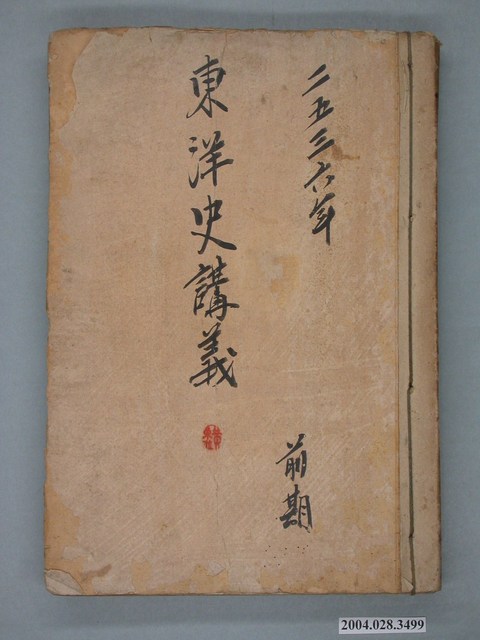 二五三六年
前期
東洋史講義
2004.028.3499